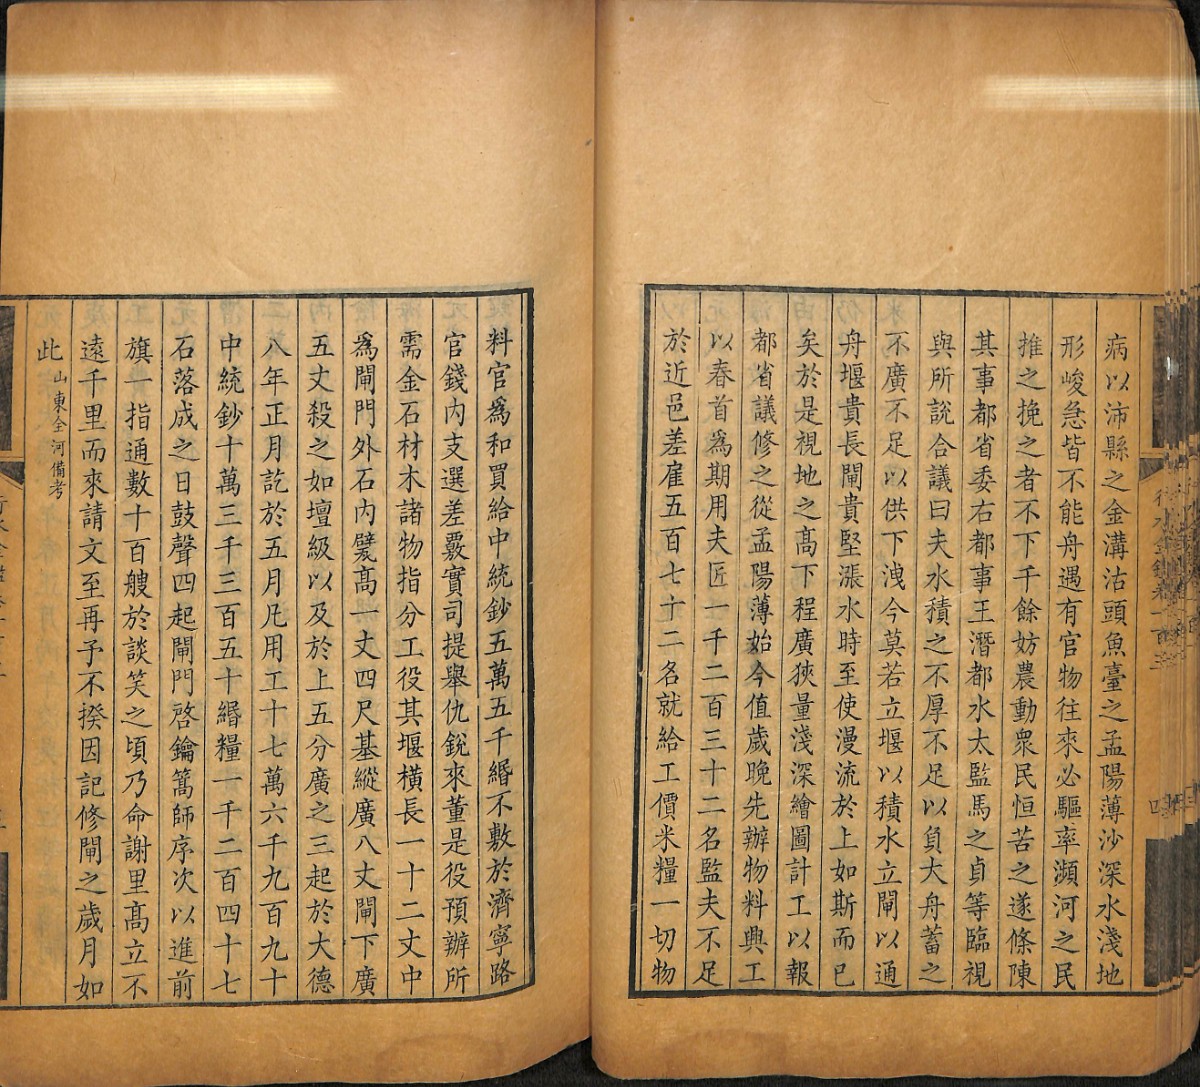 病以沛縣之金溝沽頭魚臺之孟陽薄沙深水淺地
形峻急皆不能舟遇有官物往來必驅率瀕河之民
推之挽之者不下千餘妨農動衆民恒苦之遂條陳
其事都省委右都事王潛都水太監馬之貞等臨視
與所說合議曰夫水積之不厚不足以負大舟蓄之
不廣不足以供下洩今莫若立堰以積水立閘以通
舟堰貴長閘貴堅漲水時至使漫流於上如斯而已
矣於是視地之高下程廣狹量淺深繪圖計工以報
都省議修之從孟陽薄始今值歲晚先辦物料興工
以春首爲期用夫匠一千二百三十二名監夫不足
於近邑差雇五百七十二名就給工價米糧一切物
料官爲和買給中統鈔五萬五千緡不敷於濟寧路
官錢內支選差覈實司提舉仇銳來董是役預辦所
需金石材木諸物指分工役其堰橫長一十二丈中
爲閘門外石內甓高一丈四尺基縱廣八丈閘下廣
五丈殺之如壇級以及於上五分廣之三起於大德
八年正月訖於五月凡用工十七萬六千九百九十
中統鈔十萬三千三百五十緡糧一千二百四十七
石落成之日鼓聲四起閘門啓鑰篙師序次以進前
旗一指通數十百艘於談笑之頃乃命謝里高立不
遠千里而來請文至再予不揆因記修閘之歲月如
此山東全河備考